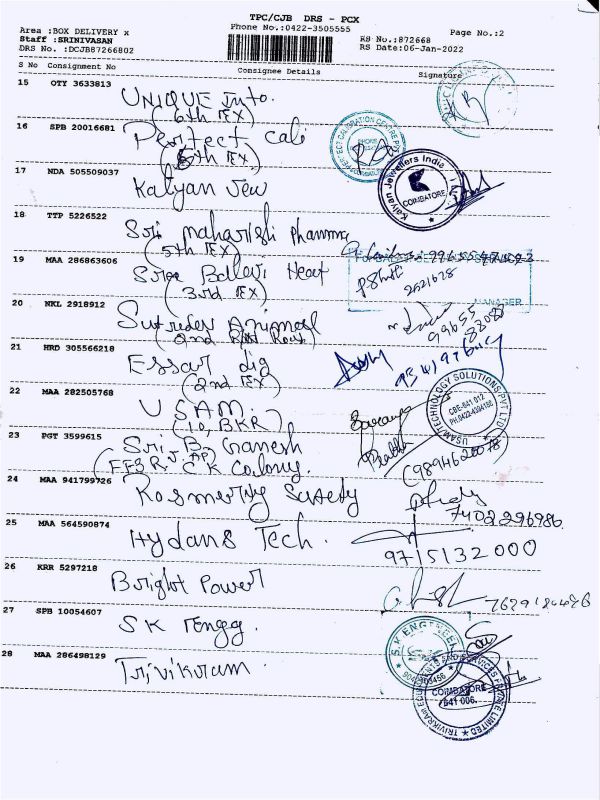 TPC/CJB DRS - PCX
Area :BOX DELIVERY x
Phone No.:0422-3505555
Page No.:2
Staff :SRINIVASAN
RS No.:872668
DRS No. :DCJB87266802
RS Date:06-Jan-2022
S No Consignment No
Consignee Details
Signature
15 OTY 3633813
UNIQUE Into.
(6th EX)
16 SPB 20016681
Perfect Cali
(5th EX)
17 NDA 505509037
Kalyan Jew
Kalyan Jewellers India
COIMBATORE
18 TTP 5226522
Sri Maharishi Pharma
(5th EX)
19 MAA 286863606
Sree Balavi Heat
(3rd EX)
MANAGER
20 NKL 2918912
Animal
21 HRD 305566218
Essar dig
(2nd EX)
22 MAA 282505768
USAM.
(10, BKR)
USAM TECHNOLOGY SOLUTIONS PVT LTD
CBE-641 012
23 PGT 3599615
Sri B. Ganesh
C K Colony.
24 MAA 941799726
Safety
7402296986.
25 MAA 564590874
Hydans Tech.
9715132000
26 KRR 5297218
Bright Power
27 SPB 10054607
SK Engg.
S.K ENGINEER
28 MAA 286498129
Trivikram.
COIMBATORE
641 006.